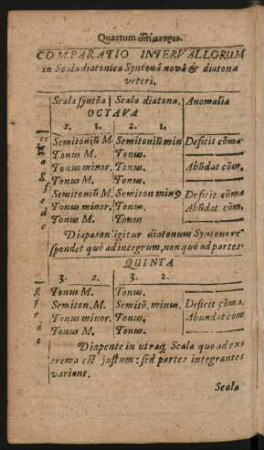 COMPARATIO INTERVALLORUM
in Scala diatonica Syntonâ novâ & diatona
veteri.
Scala syntõa | Scala diatona. | Anomalia
OCTAVA
2. 1. 2. 1.
Semitoniũ M. Semitoniũ min Deficit cõma
Tonus M. Tonus.
Tonus minor. Tonus. Abũdat cõm.
Tonus M. Tonus.
Semitoniũ M. Semiton min9 Deficit cõma
Tonus minor. Tonus. Abũdat cõm.
Tonus M. Tonus
Diapason igitur diatonum Syntono re
spondet quò ad integrum, non quò ad partes.
QUINTA
3. 2. 3. 2.
Tonus M. Tonus.
Semiton. M. Semitõ. minus. Deficit cõma.
Tonus minor. Tonus. Abundat com
Tonus M. Tonus.
Diapente in utraq; Scala quo ad ex
trema est justum: sed partes integrantes
variant.
Scala